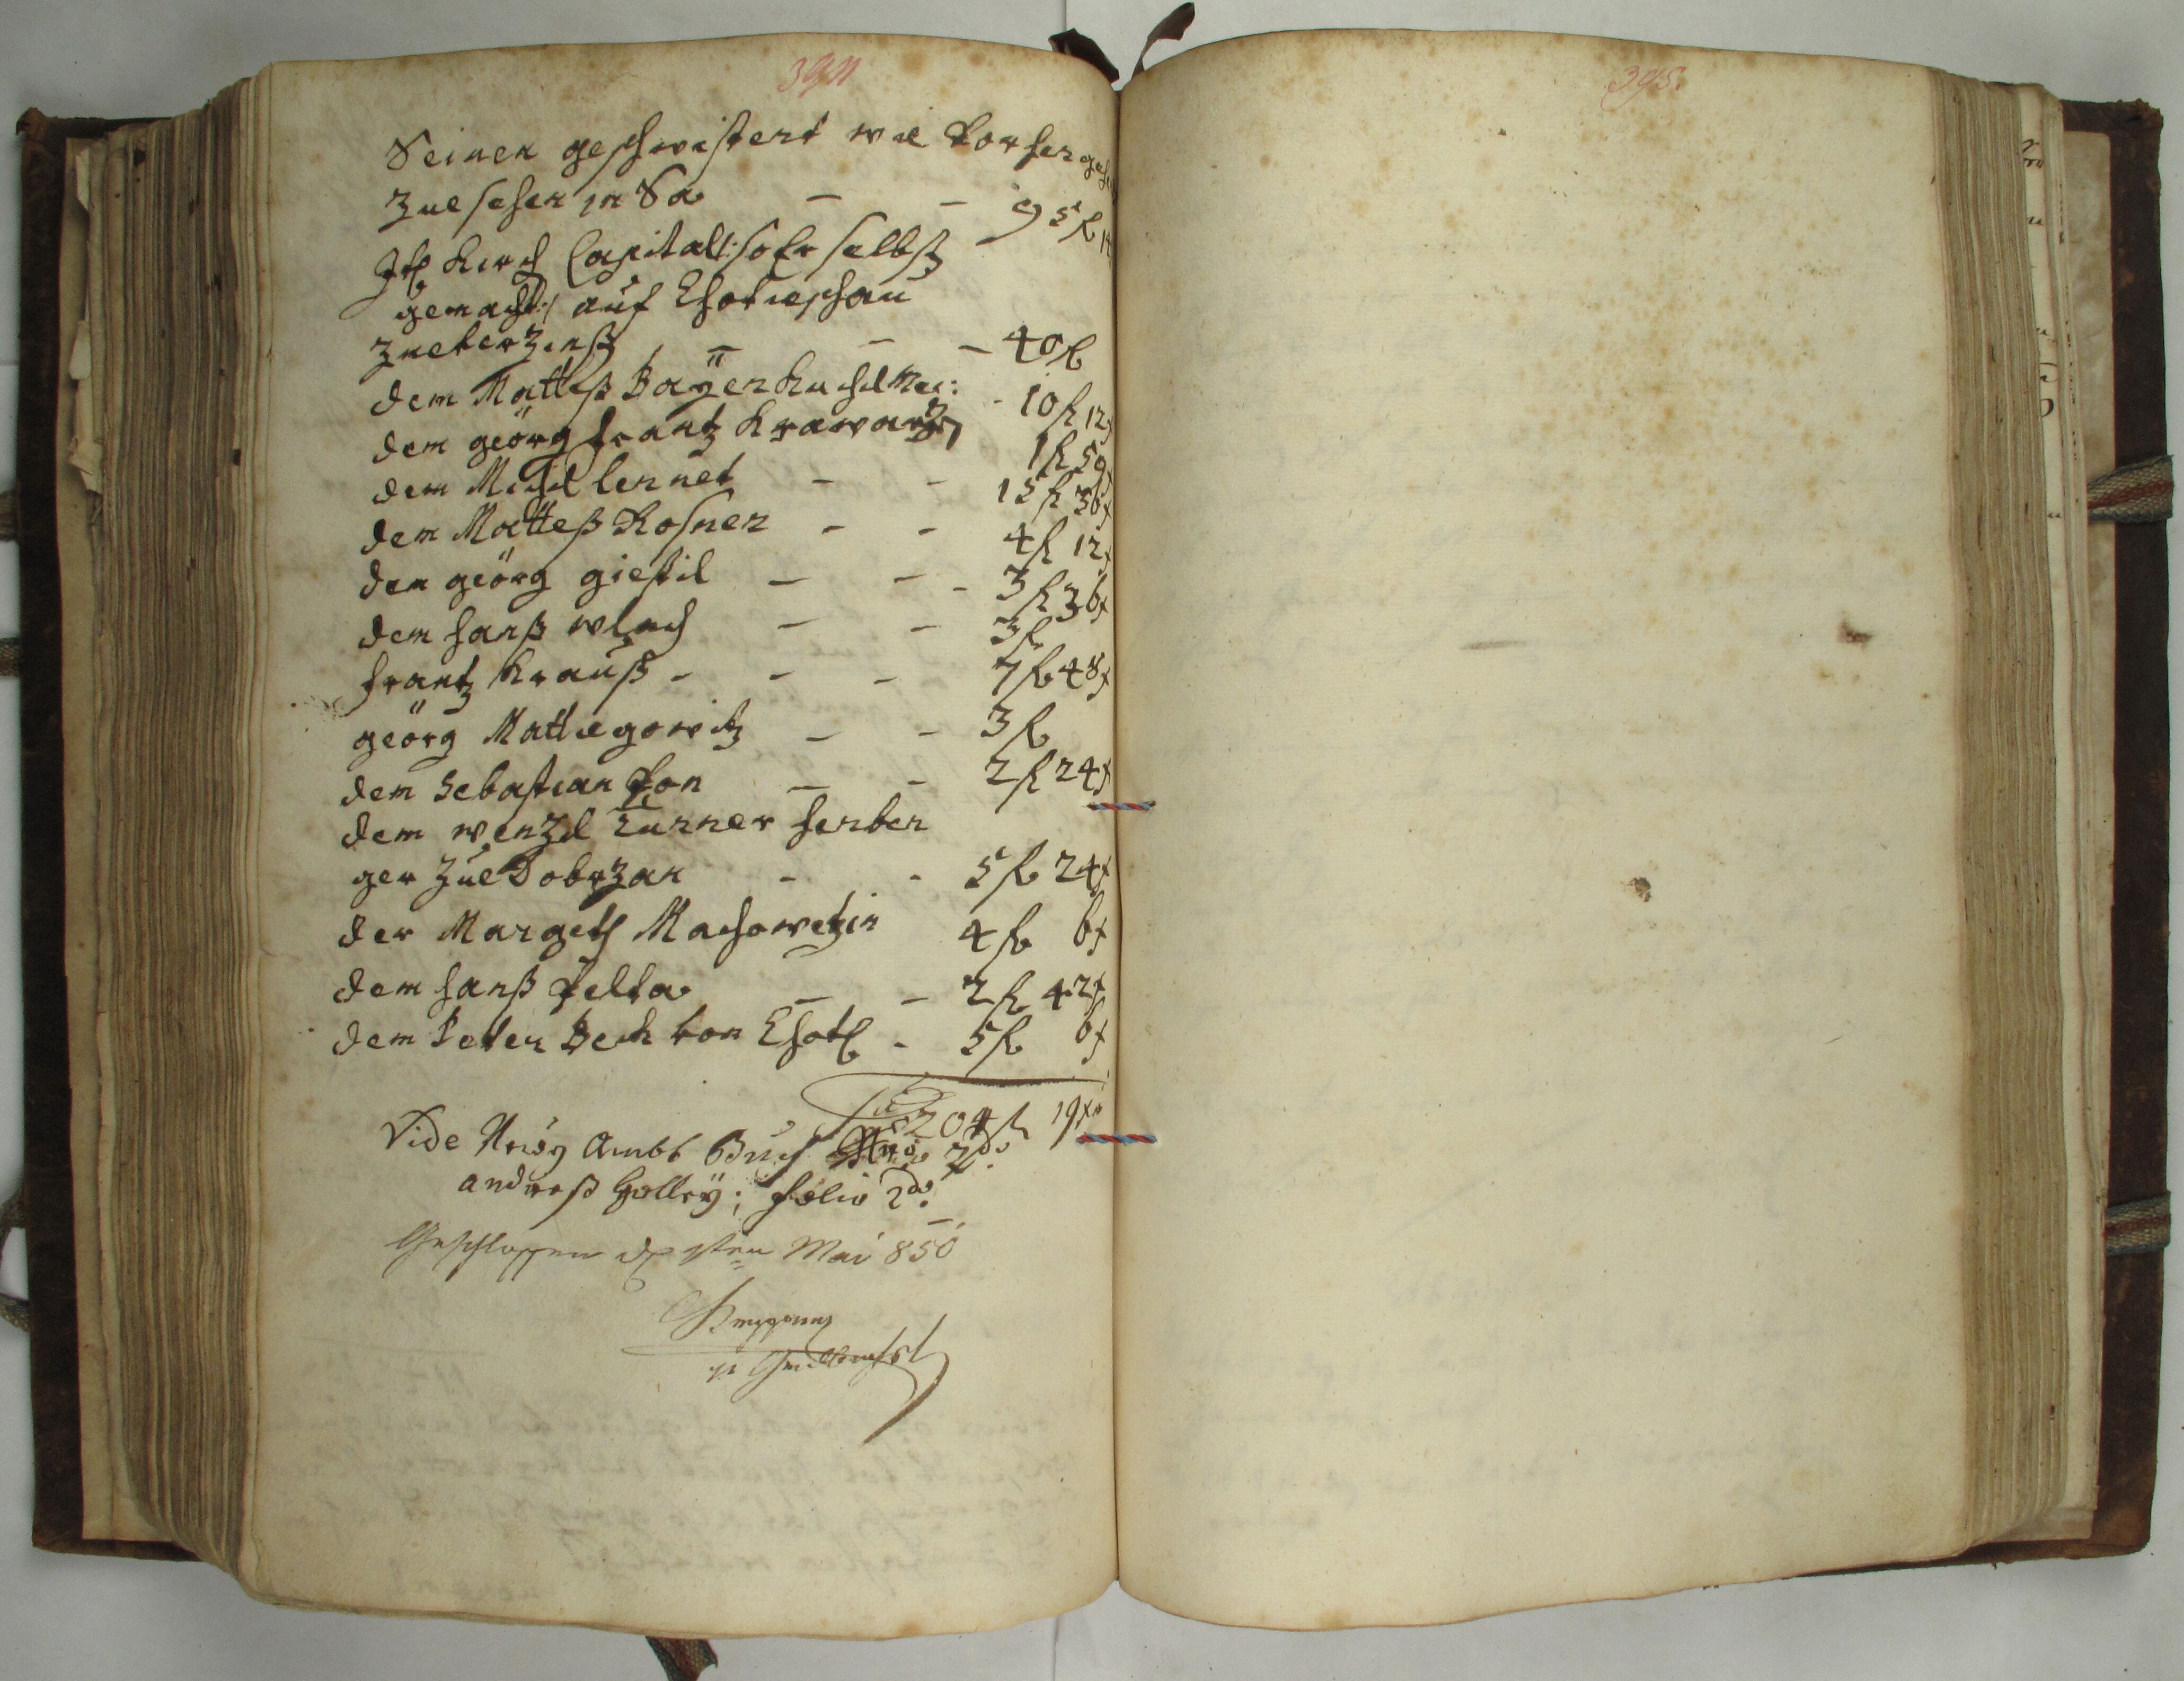 394
Seinen geschwistert wie vorher
zue sehen in Sa — — 95 fl
Kirch Capital /: so Er selbst
gemacht :/ auf Chotieschau
zueverzinß — — — 40 fl
dem Matteß Bayer - 10 fl 12 x
dem georg frantz Krawarz 1 fl 59 x
dem Michl lernet — — 15 fl 36 x
dem Matteß Kosner — — 4 fl 12 x
dem georg giestl — — — 3 fl 36 x
dem hanß wlach — — 3 fl
frantz Krauß — — — 7 fl 48 x
georg Mattiegowitz — — 3 fl
dem Sebastian — — 2 fl 24 x
dem wenzl Turner herber
ger zue Dobrzan — — 5 fl 24 x
der Margeth Machowetzin 4 fl 6 x
dem hanß Pelta — — 2 fl 42 x
dem Peter Beck von Chot — 5 fl 6 x
204 fl 19 x
Vide Ambt Buch 2do
andreß Golley; folio 2do
Geschlossen Mai 850
395